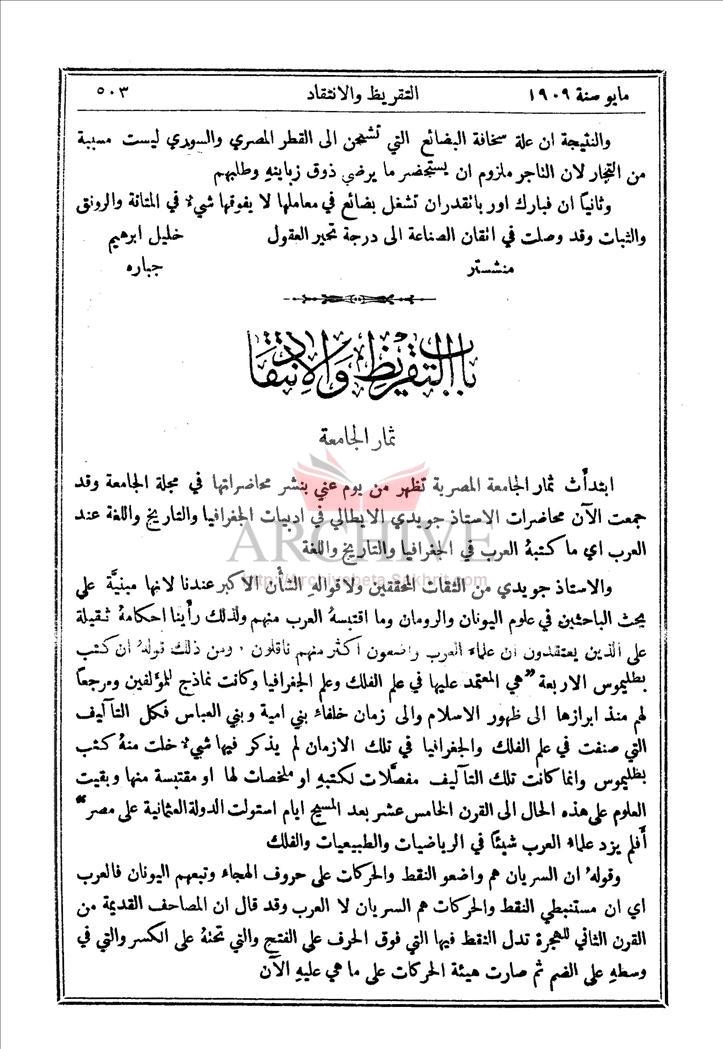 مايو سنة ١٩٠٩
التقريظ والانتقاد
٥٠٣
والنتيجة ان علة سخافة البضائع التي تشحن الى القطر المصري والسوري ليست مسببة
من التجار لان التاجر ملزوم ان يستحضر ما يرضي ذوق زباينهِ وطلبهم
وثانياً ان فبارك اوربا تقدران تشغل بضائع في معاملها لا يفوقها شيءٌ في المتانة والرونق
والثبات وقد وصلت في اتقان الصناعة الى درجة تحير العقول خليل ابرهيم
منشستر جباره
باب التقريظ والانتقاد
ثمار الجامعة
ابتدأت ثمار الجامعة المصرية تظهر من يوم عني بنشر محاضراتها في مجلة الجامعة وقد
جمعت الآن محاضرات الاستاذ جويدي الايطالي في ادبيات الجغرافيا والتاريخ واللغة عند
العرب اي ما كتبهُ العرب في الجغرافيا والتاريخ واللغة
ARCHIVE
http://Archivebeta.Sakhrit.com
والاستاذ جويدي من الثقات المحققين ولاقواله الشأن الاكبر عندنا لانها مبنيَّة على
بحث الباحثين في علوم اليونان والرومان وما اقتبسهُ العرب منهم ولذلك رأينا احكامهُ ثقيلة
على الذين يعتقدون ان علماء العرب واضعون اكثر منهم ناقلون . ومن ذلك قولهُ ان كتب
بطليموس الاربعة "هي المعتمد عليها في علم الفلك وعلم الجغرافيا وكانت نماذج للمؤلفين ومرجعاً
لهم منذ ابرازها الى ظهور الاسلام والى زمان خلفاء بني امية وبني العباس فكل التآليف
التي صنفت في علم الفلك والجغرافيا في تلك الازمان لم يذكر فيها شيءٌ خلت منهُ كتب
بطليموس وانما كانت تلك التآليف مفصَّلات لكتبهِ او ملخصات لها او مقتبسة منها وبقيت
العلوم على هذه الحال الى القرن الخامس عشر بعد المسيح ايام استولت الدولة العثمانية على مصر"
أفلم يزد علماء العرب شيئًا في الرياضيات والطبيعيات والفلك
وقولهُ ان السريان هم واضعو النقط والحركات على حروف الهجاء وتبعهم اليونان فالعرب
اي ان مستنبطي النقط والحركات هم السريان لا العرب وقد قال ان المصاحف القديمة من
القرن الثاني للهجرة تدل النقط فيها التي فوق الحرف على الفتح والتي تحتهُ على الكسر والتي في
وسطهِ على الضم ثم صارت هيئة الحركات على ما هي عليهِ الآن